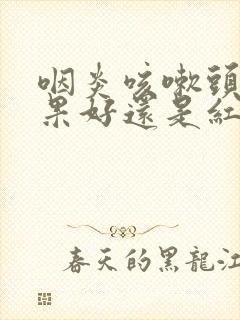 咽炎咳嗽頭
果好還是紅
春天的黑龍江